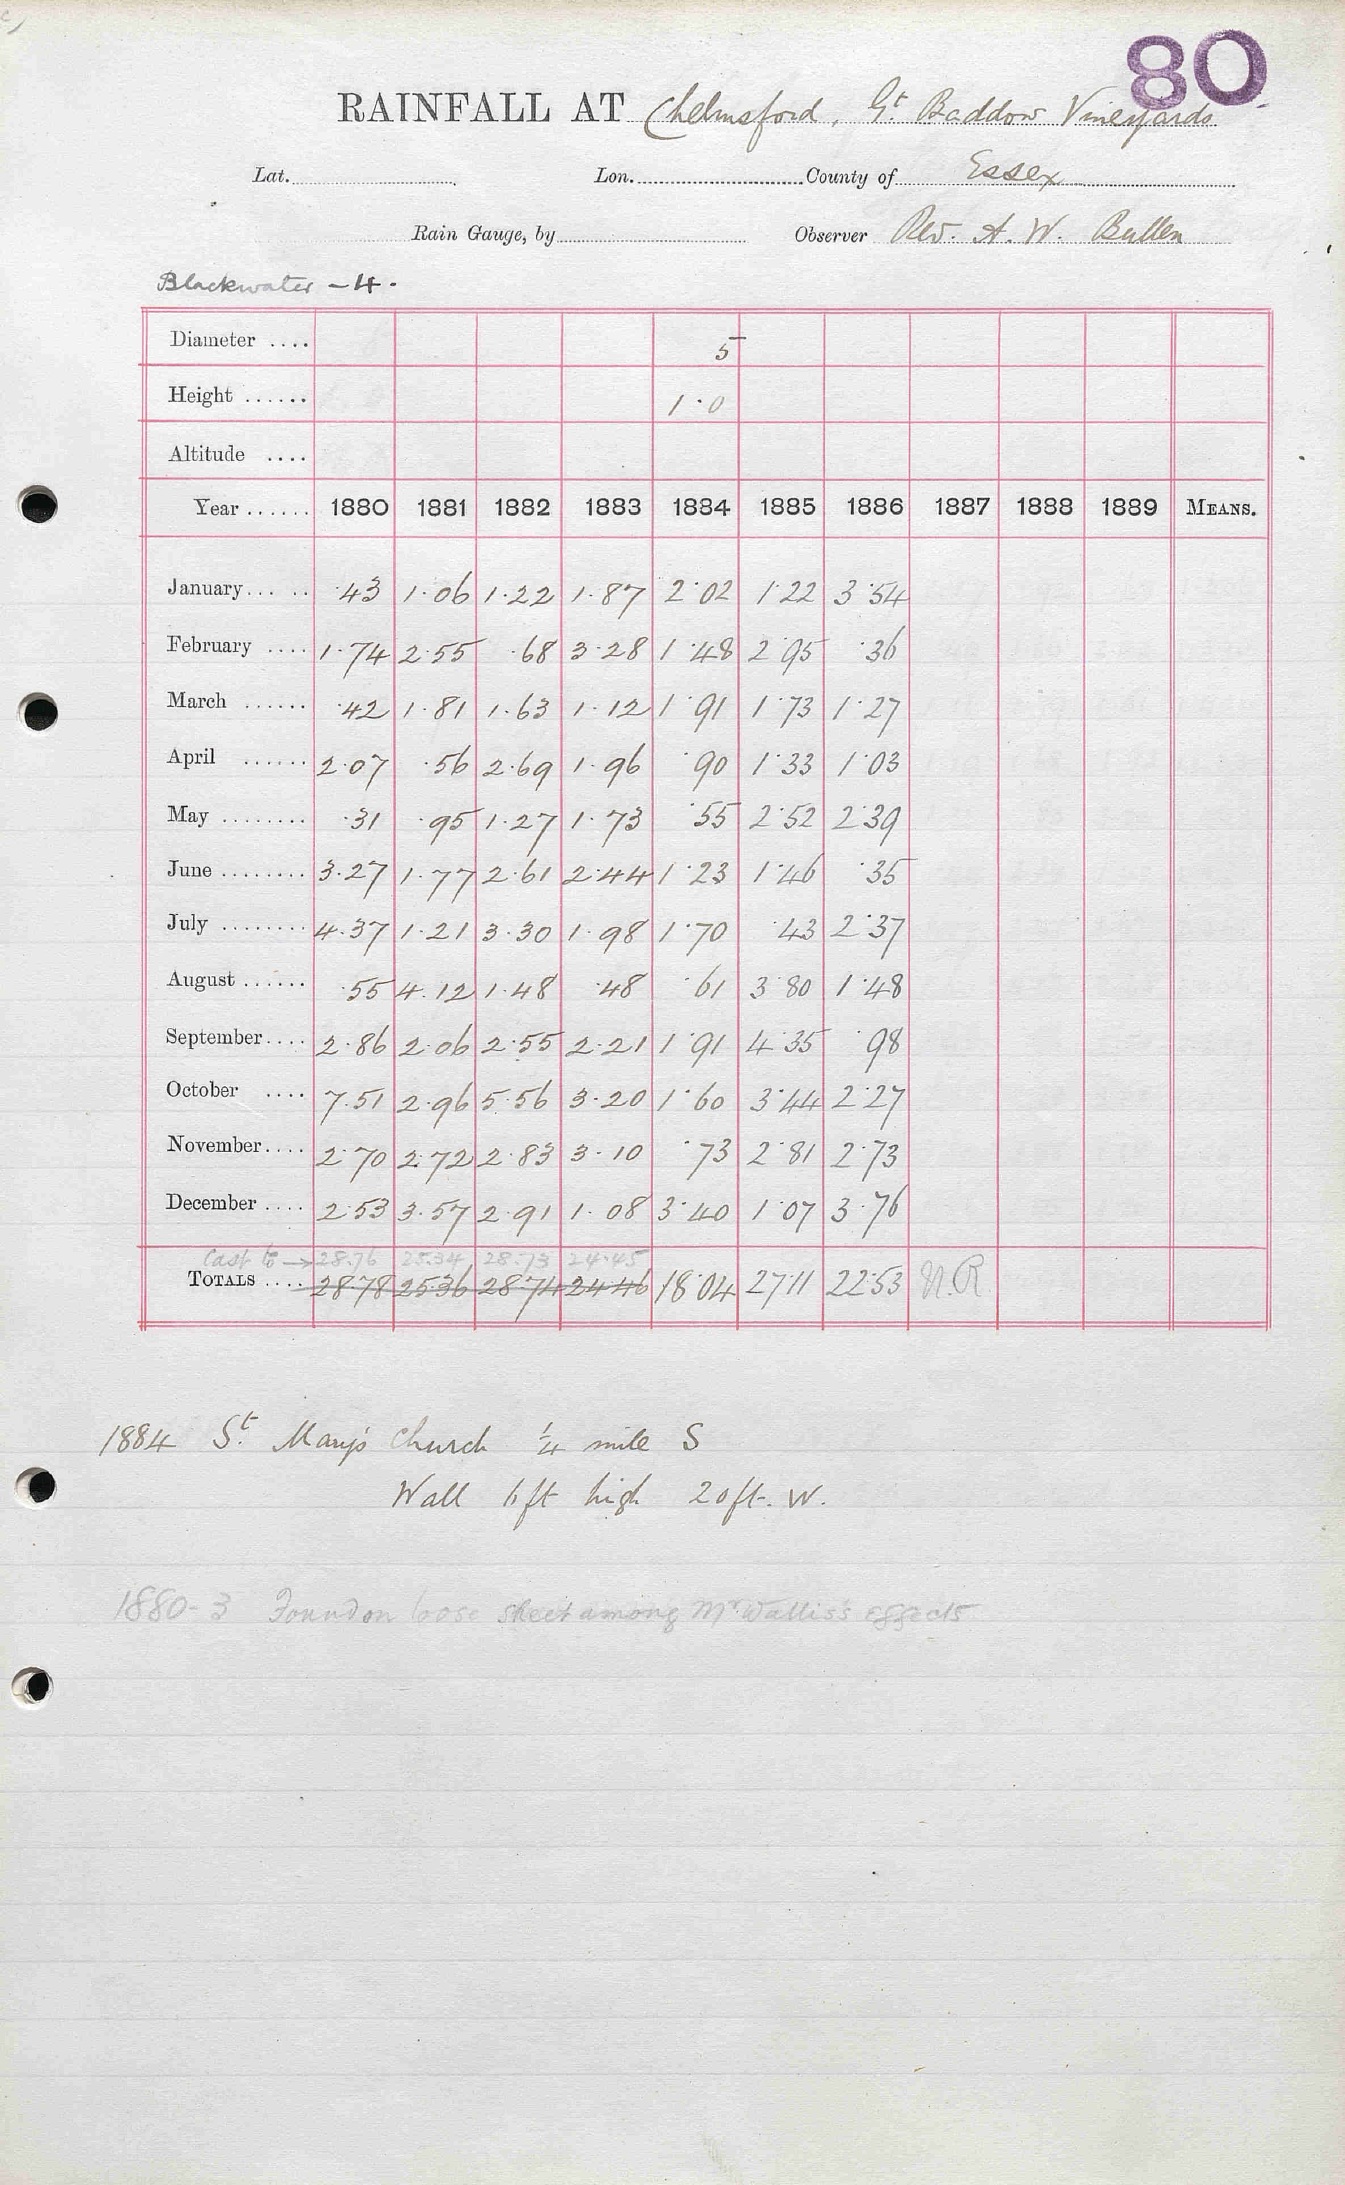 80
RAINFALL AT Chelmsford, Gt Baddow Vineyards
Lat. Lon. County of Essex
Rain Gauge, by Observer Rev. A. W. Bullen
Blackwater - 4.
Diameter .... 5
Height ...... 1.0
Altitude ....
Year ...... 1880 1881 1882 1883 1884 1885 1886 1887 1888 1889 MEANS.
January... .. .43 1.06 1.22 1.87 2.02 1.22 3.54
February .... 1.74 2.55 .68 3.28 1.48 2.95 .36
March ...... .42 1.81 1.63 1.12 1.91 1.73 1.27
April ...... 2.07 .56 2.69 1.96 .90 1.33 1.03
May ........ .31 .95 1.27 1.73 .55 2.52 2.39
June ........ 3.27 1.77 2.61 2.44 1.23 1.46 .35
July ........ 4.37 1.21 3.30 1.98 1.70 .43 2.37
August ...... .55 4.12 1.48 .48 .61 3.80 1.48
September.... 2.86 2.06 2.55 2.21 1.91 4.35 .98
October .... 7.51 2.96 5.56 3.20 1.60 3.44 2.27
November.... 2.70 2.72 2.83 3.10 .73 2.81 2.73
December .... 2.53 3.57 2.91 1.08 3.40 1.07 3.76
Cast to → 28.76 25.34 28.73 24.45
TOTALS .... 28.78 25.36 28.74 24.46 18.04 27.11 22.53 N.R.
1884 St. Mary's Church 1/4 mile S
Wall 6ft high 20ft. W.
1880-3 Found on loose sheet among Mr. Wallis's effects